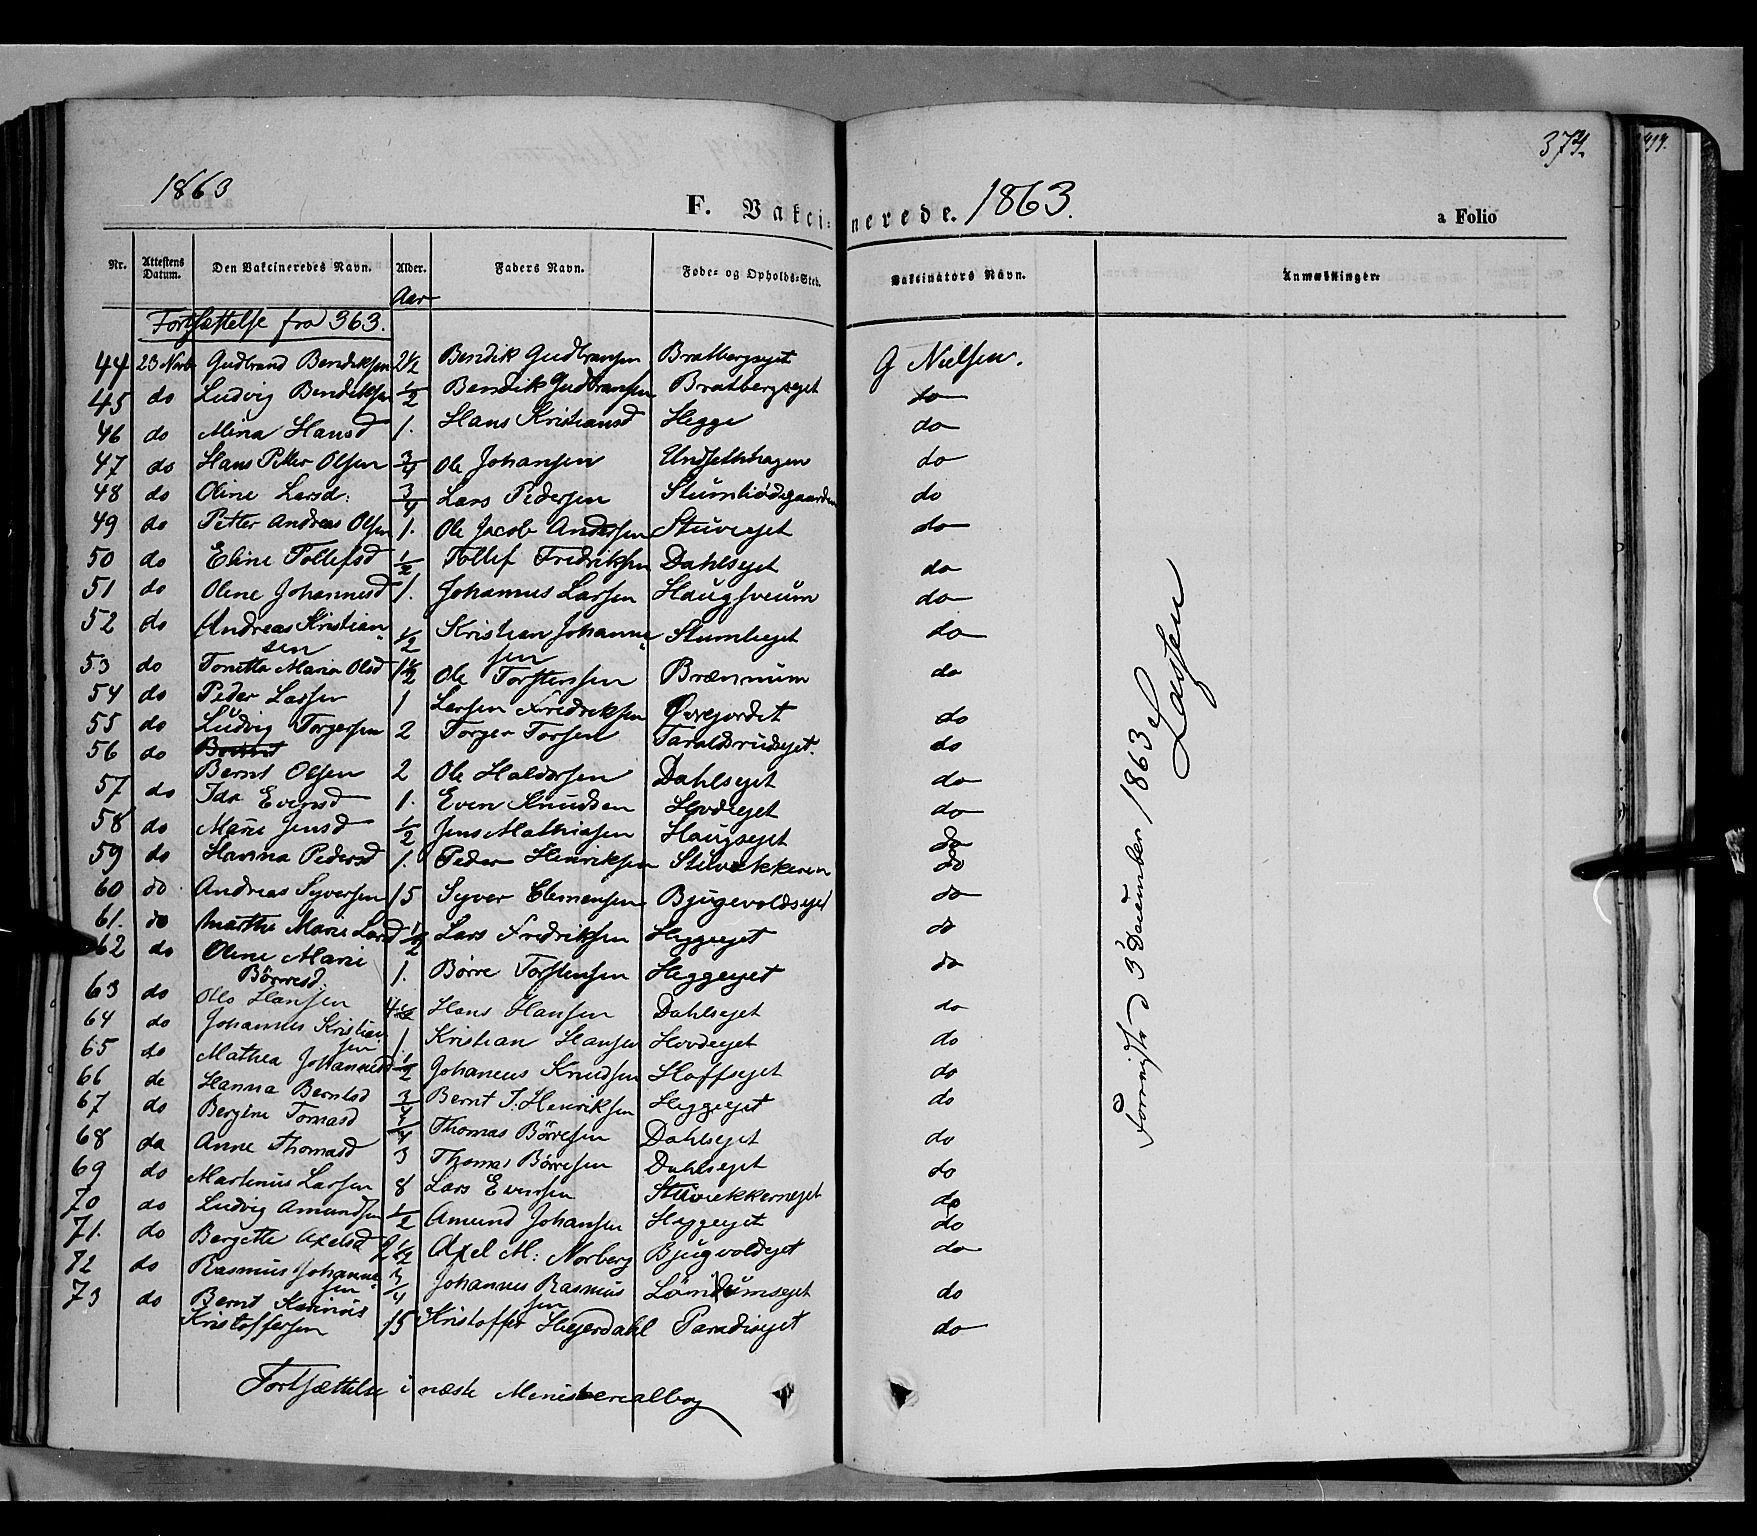 374.
1863
F. Vakcinerede. 1863.
a Folio
Nr. Attestens Datum. Den Vakcineredes Navn. Alder. Faders Navn. Føde- og Opholds-Sted. Vakcinators Navn. Anmærkninger.
Aar
Fortsættelse fra 363.
44 23 Novb Gudbrand Bendiksen 2½ Bendik Gudbransen Bratbergseyet G Nielsen.
45 do Ludvig Bendiksen ½ Bendik Gudbransen Bratbergseyet do
46 do Mina Hansd 1. Hans Kristiansd Hegge do
47 do Hans Petter Olsen ¾ Ole Johansen Undsethhagen do
48 do Oline Larsd: ¾ Lars Pedersen do
49 do Petter Andreas Olsen 1. Ole Jacob Anderssen Stuveeyet do
50 do Eline Tollefsd ½ Tollef Fredriksen Dahlseyet do
51 do Oline Johannesd 1. Johannes Larsen Haugsveum do
52 do Andreas Kristian ½ Kristian Johanne Stumlieyet do
sen sen
53 do Tonette Marie Olsd 1½ Ole Torstensen Brænnum do
54 do Peder Larsen 1 Larsen Fredriksen Øvrejordet do
55 do Ludvig Torgersen 2 Torger Torsen Taraldsrudseyet. do
56 do
Bernt Olsen 2 Ole Haldorsen Dahlseyet do
57 do Ida Evensd 1. Even Knudsen Hovdeeyet do
58 do Marie Jensd ½ Jens Mathiasen Haugseyet do
59 do Hanna Pedersd 1. Peder Henriksen Stuvekkeren do
60 do Andreas Syversen 15 Syver Clemensen Bjugevoldseyet do
61. do Marthe Marie Larsd ½ Lars Fredriksen Heggeeyet do
62 do Oline Marie 1. Børre Torstensen Heggeeyet do
Børresd.
63 do Ole Hansen 4½ Hans Hansen Dahlseyet do
64 do Johannes Kristian 1. Kristian Hansen Hovdeeyet do
sen
65 do Mathea Johannesd ½ Johannes Knudsen Hoffseyet do
66 do Hanna Berntsd ¾ Bernt J. Henriksen Heggeeyet do
67 do Bergine Tomasd ¼ Thomas Børresen Dahlseyet do
68 da Anne Thomasd 3 Thomas Børresen Dahlseyet do
69 do Martinus Larsen 8 Lars Evensen Stuvekkerneyet do
70 do Ludvig Amundsen ½ Amund Johansen Heggeeyet do
71. do Bergette Axelsd 2½ Axel M: Norberg Bjugvoldeyet do
72 do Rasmus Johanne ¾ Johannes Rasmus Lømdumseyet do
sen sen
73 do Bernt Karinus
Kristoffersen 15 Kristoffer Hejerdahl Paradiseyet do
Fortsættelse i næste Ministerealbog
3 December 1863
Lassen